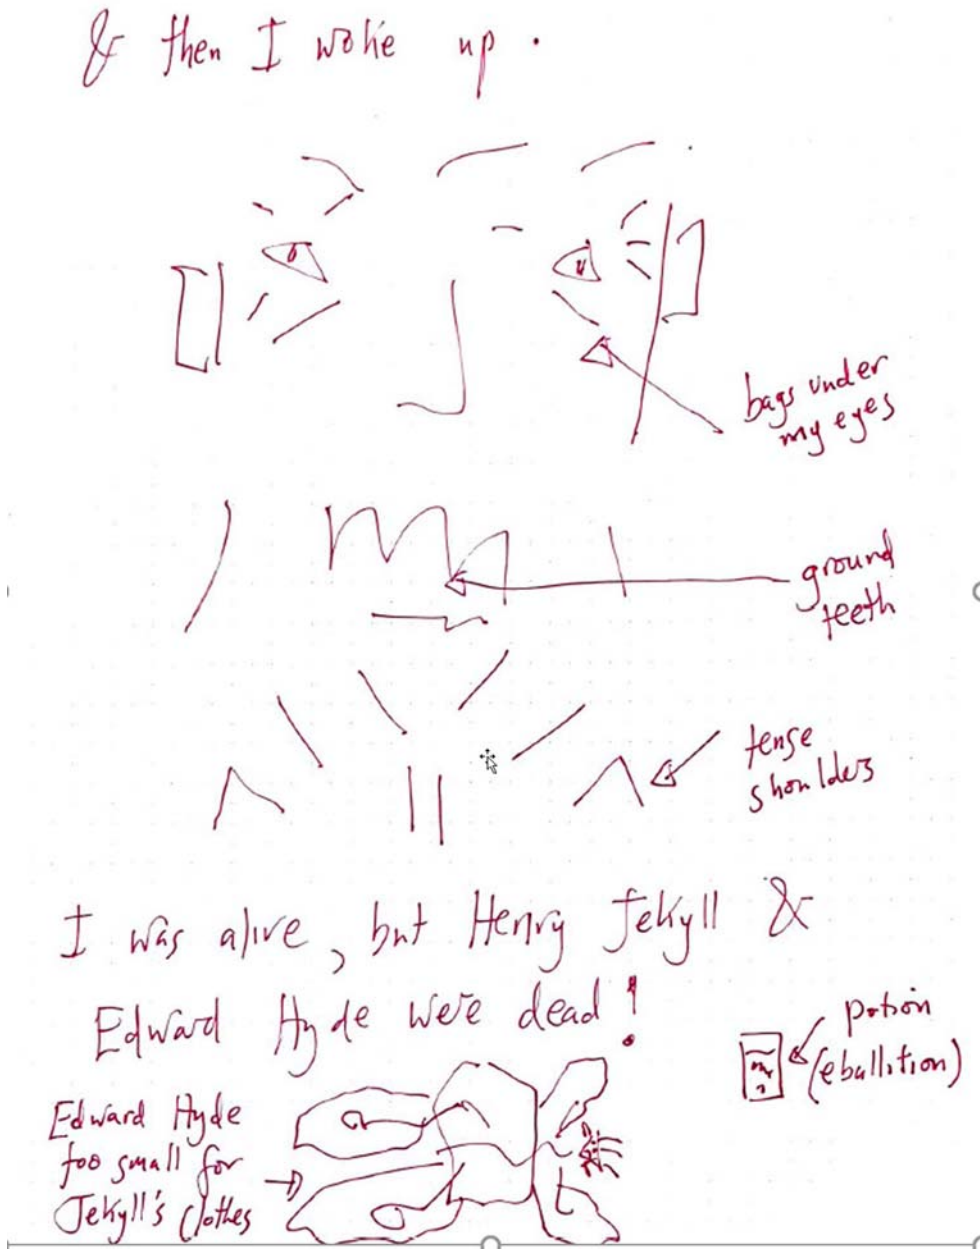 & then I woke up.
bags under
my eyes
ground
teeth
tense
shoulders
I was alive, but Henry Jekyll &
Edward Hyde were dead!
potion
(ebullition)
Edward Hyde
too small for
Jekyll's clothes